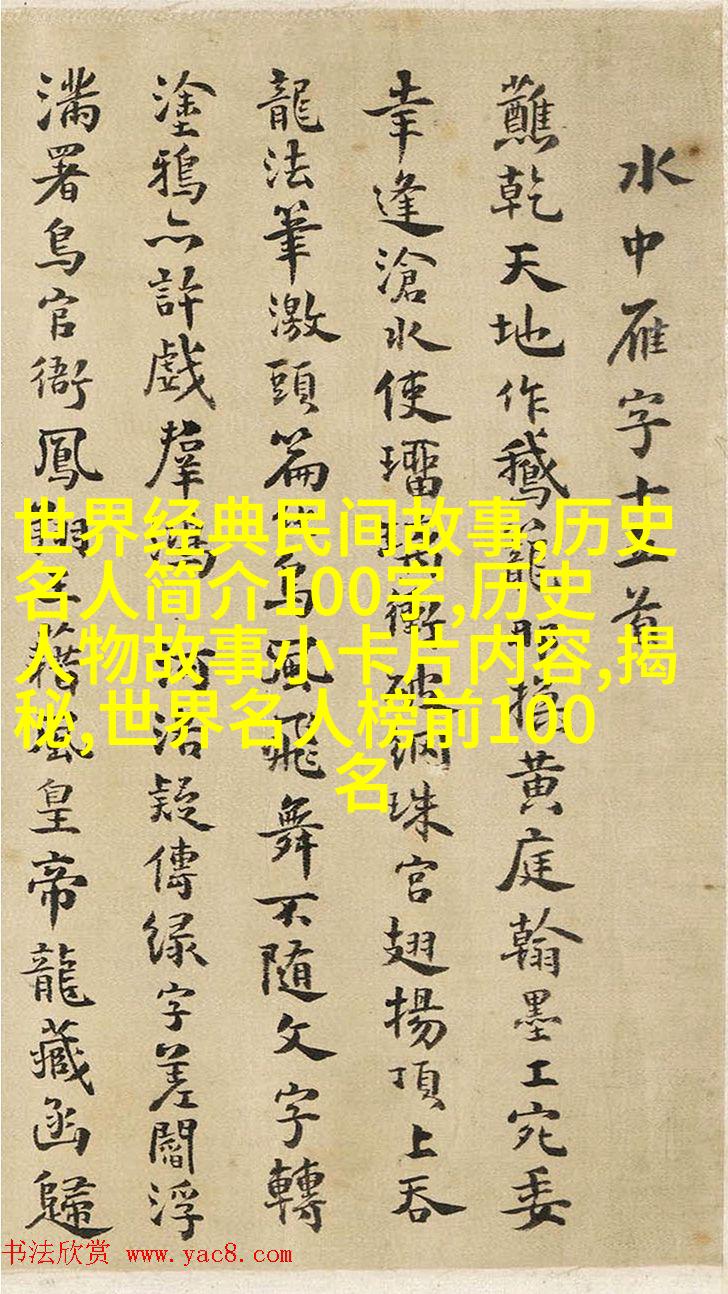 水中雁字十五首
蘸乾天地作鵝籠 指黃庭翰墨工宛委
幸逢滄水使 衝破網珠宮翅揚頂上吞
龍法筆激頭篇 鳥風飛舞不随文字轉
塗鴉亦許戲羣鴻 活疑傳緑字差閣浮
滿署鳥官衙鳳 皇帝龍藏函歸
世界经典民间故事,历史
名人简介100字,历史
人物故事小卡片内容,揭
秘,世界名人榜前100
名
书法欣赏 www.yac8.com